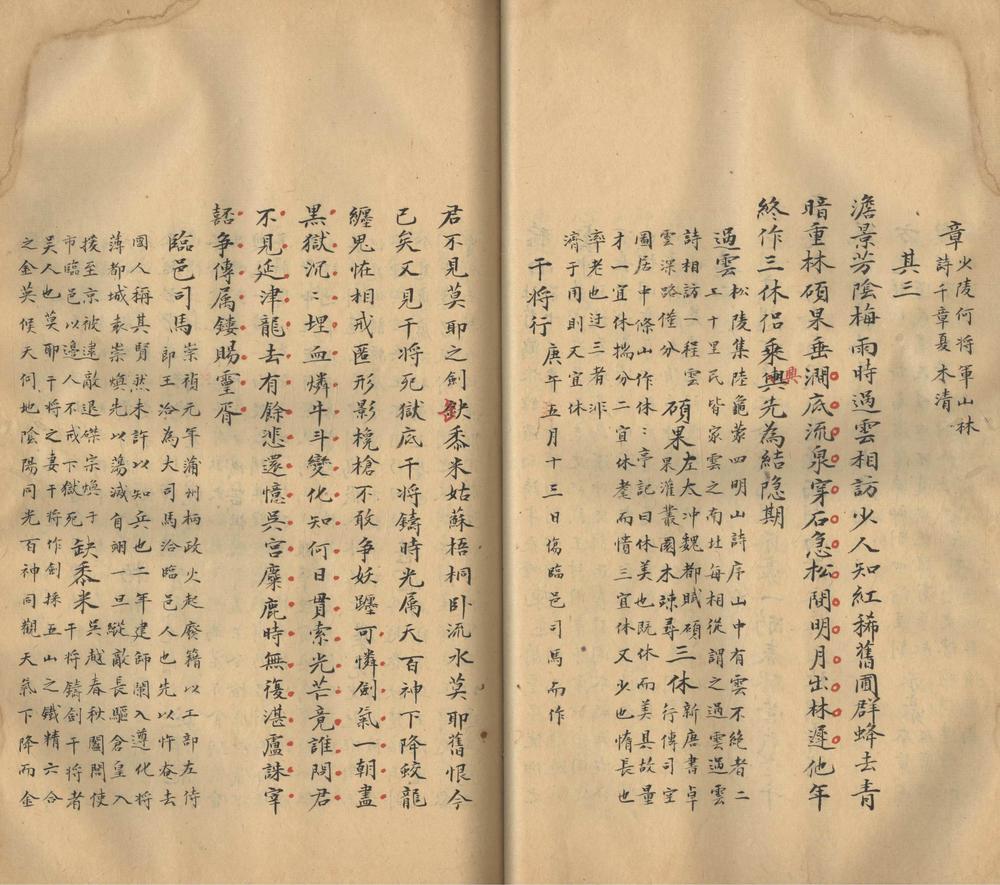 章火陵何将軍山林
詩千章夏木清
其三
澹景芳陰梅雨時過雲相訪少人知紅稀舊圃群蜂去青
暗重林碩果垂澗底流泉穿石急松間明月出林遲他年
終作三休侣乘輿先為結隐期
興
過雲松陵集陸龜蒙四明山詩序山中有雲不絶者二
十里民皆家雲之南北每相從謂之過雲過雲
詩相訪一程雲
雲深路僅分碩果左太冲魏都賦碩
果灌叢園木竦尋三休新唐書卓
行傳司空
圖居中條山作休休亭記曰休美也既休而美具故量
才一宜休揣分二宜休耄而憒三宜休又少也惰長也
率老也迂三者非
濟于用則又宜休
干将行庚午五月十三日傷臨邑司馬而作
君不見莫耶之劍缺黍米姑蘇梧桐卧流水莫耶舊恨今
已矣又見干将死獄底干将鑄時光属天百神下降蛟龍
纏鬼怪相戒匿形影欃槍不敢争妖躔可憐劍氣一朝盡
黒獄沉〻埋血燐斗斗變化知何日貫索光芒竟誰問君
不見延津龍去有餘悲還憶吳宫麋鹿時無復湛盧誅宰
嚭争傳属鏤賜靈胥
臨邑司馬崇禎元年蒲州柄政火起廢籍以工部左侍
郎王洽為大司馬洽臨邑人也先以忤奄去
國人稱其賢然未許以知兵也二年建師闌入遵化将
薄都城袁崇煥先以蕩滅自詡一旦縱敵長驅倉皇入
援至京被逮敵退磔崇煥于
市臨邑以邊人不戒下獄死缺黍米吳越春秋闔閭使
干将鑄劍干将者
吳人也莫耶干将之妻干将作劍採五山之鐵精六合
之金英候天伺地陰陽同光百神同觀天氣下降而金